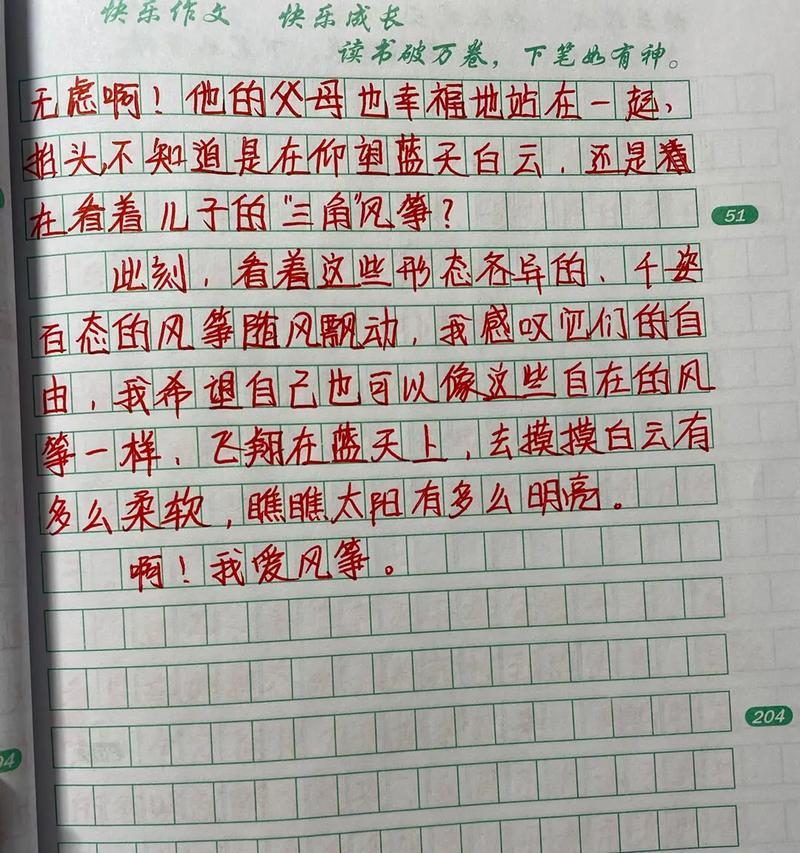 快乐作文 快乐成长
读书破万卷，下笔如有神。
无虑啊！他的父母也幸福地站在一起，
抬头,不知道是在仰望蓝天白云，还是着
在看着儿子的“三角”风筝？
51
此刻，看着这些形态各异的、千姿
百态的风筝随风飘动，我感叹它们的自
由，我希望自己也可以像这些自在的风
筝一样，飞翔在蓝天上，去摸摸白云有
多么柔软，瞧瞧太阳有多么明亮。
啊！我爱风筝。
204